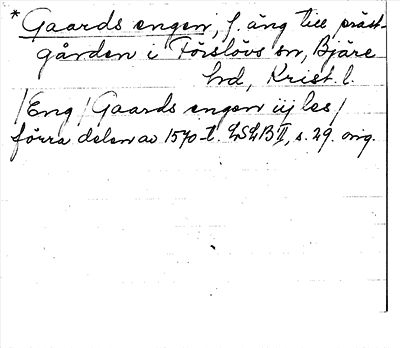 * Gaards engen, f. äng till präst-
gården i Förslövs sn, Bjäre
hd, Krist. l.
/Eng / Gaards engen üj les /
förra delen av 1570-t. LSLB II, s. 29. orig.